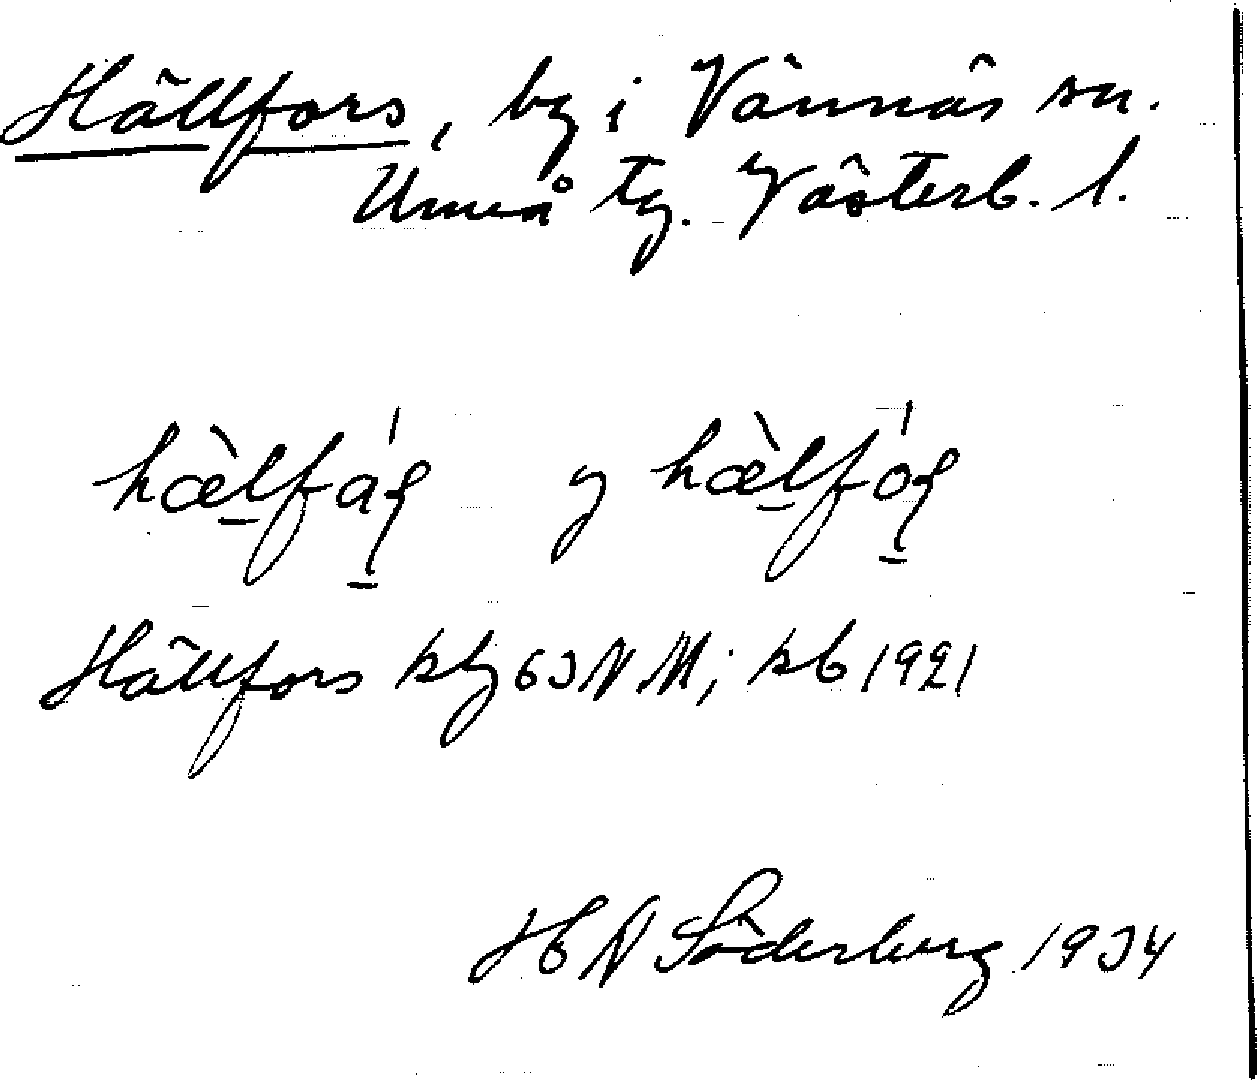 Hällfors, by i Vännäs sn.
Umeå tg. Västerb. l.
hæ̀lfáʂ y hæ̀lfóʂ
Hällfors kbl 63 NV; kb 1921
H Söderberg 1934